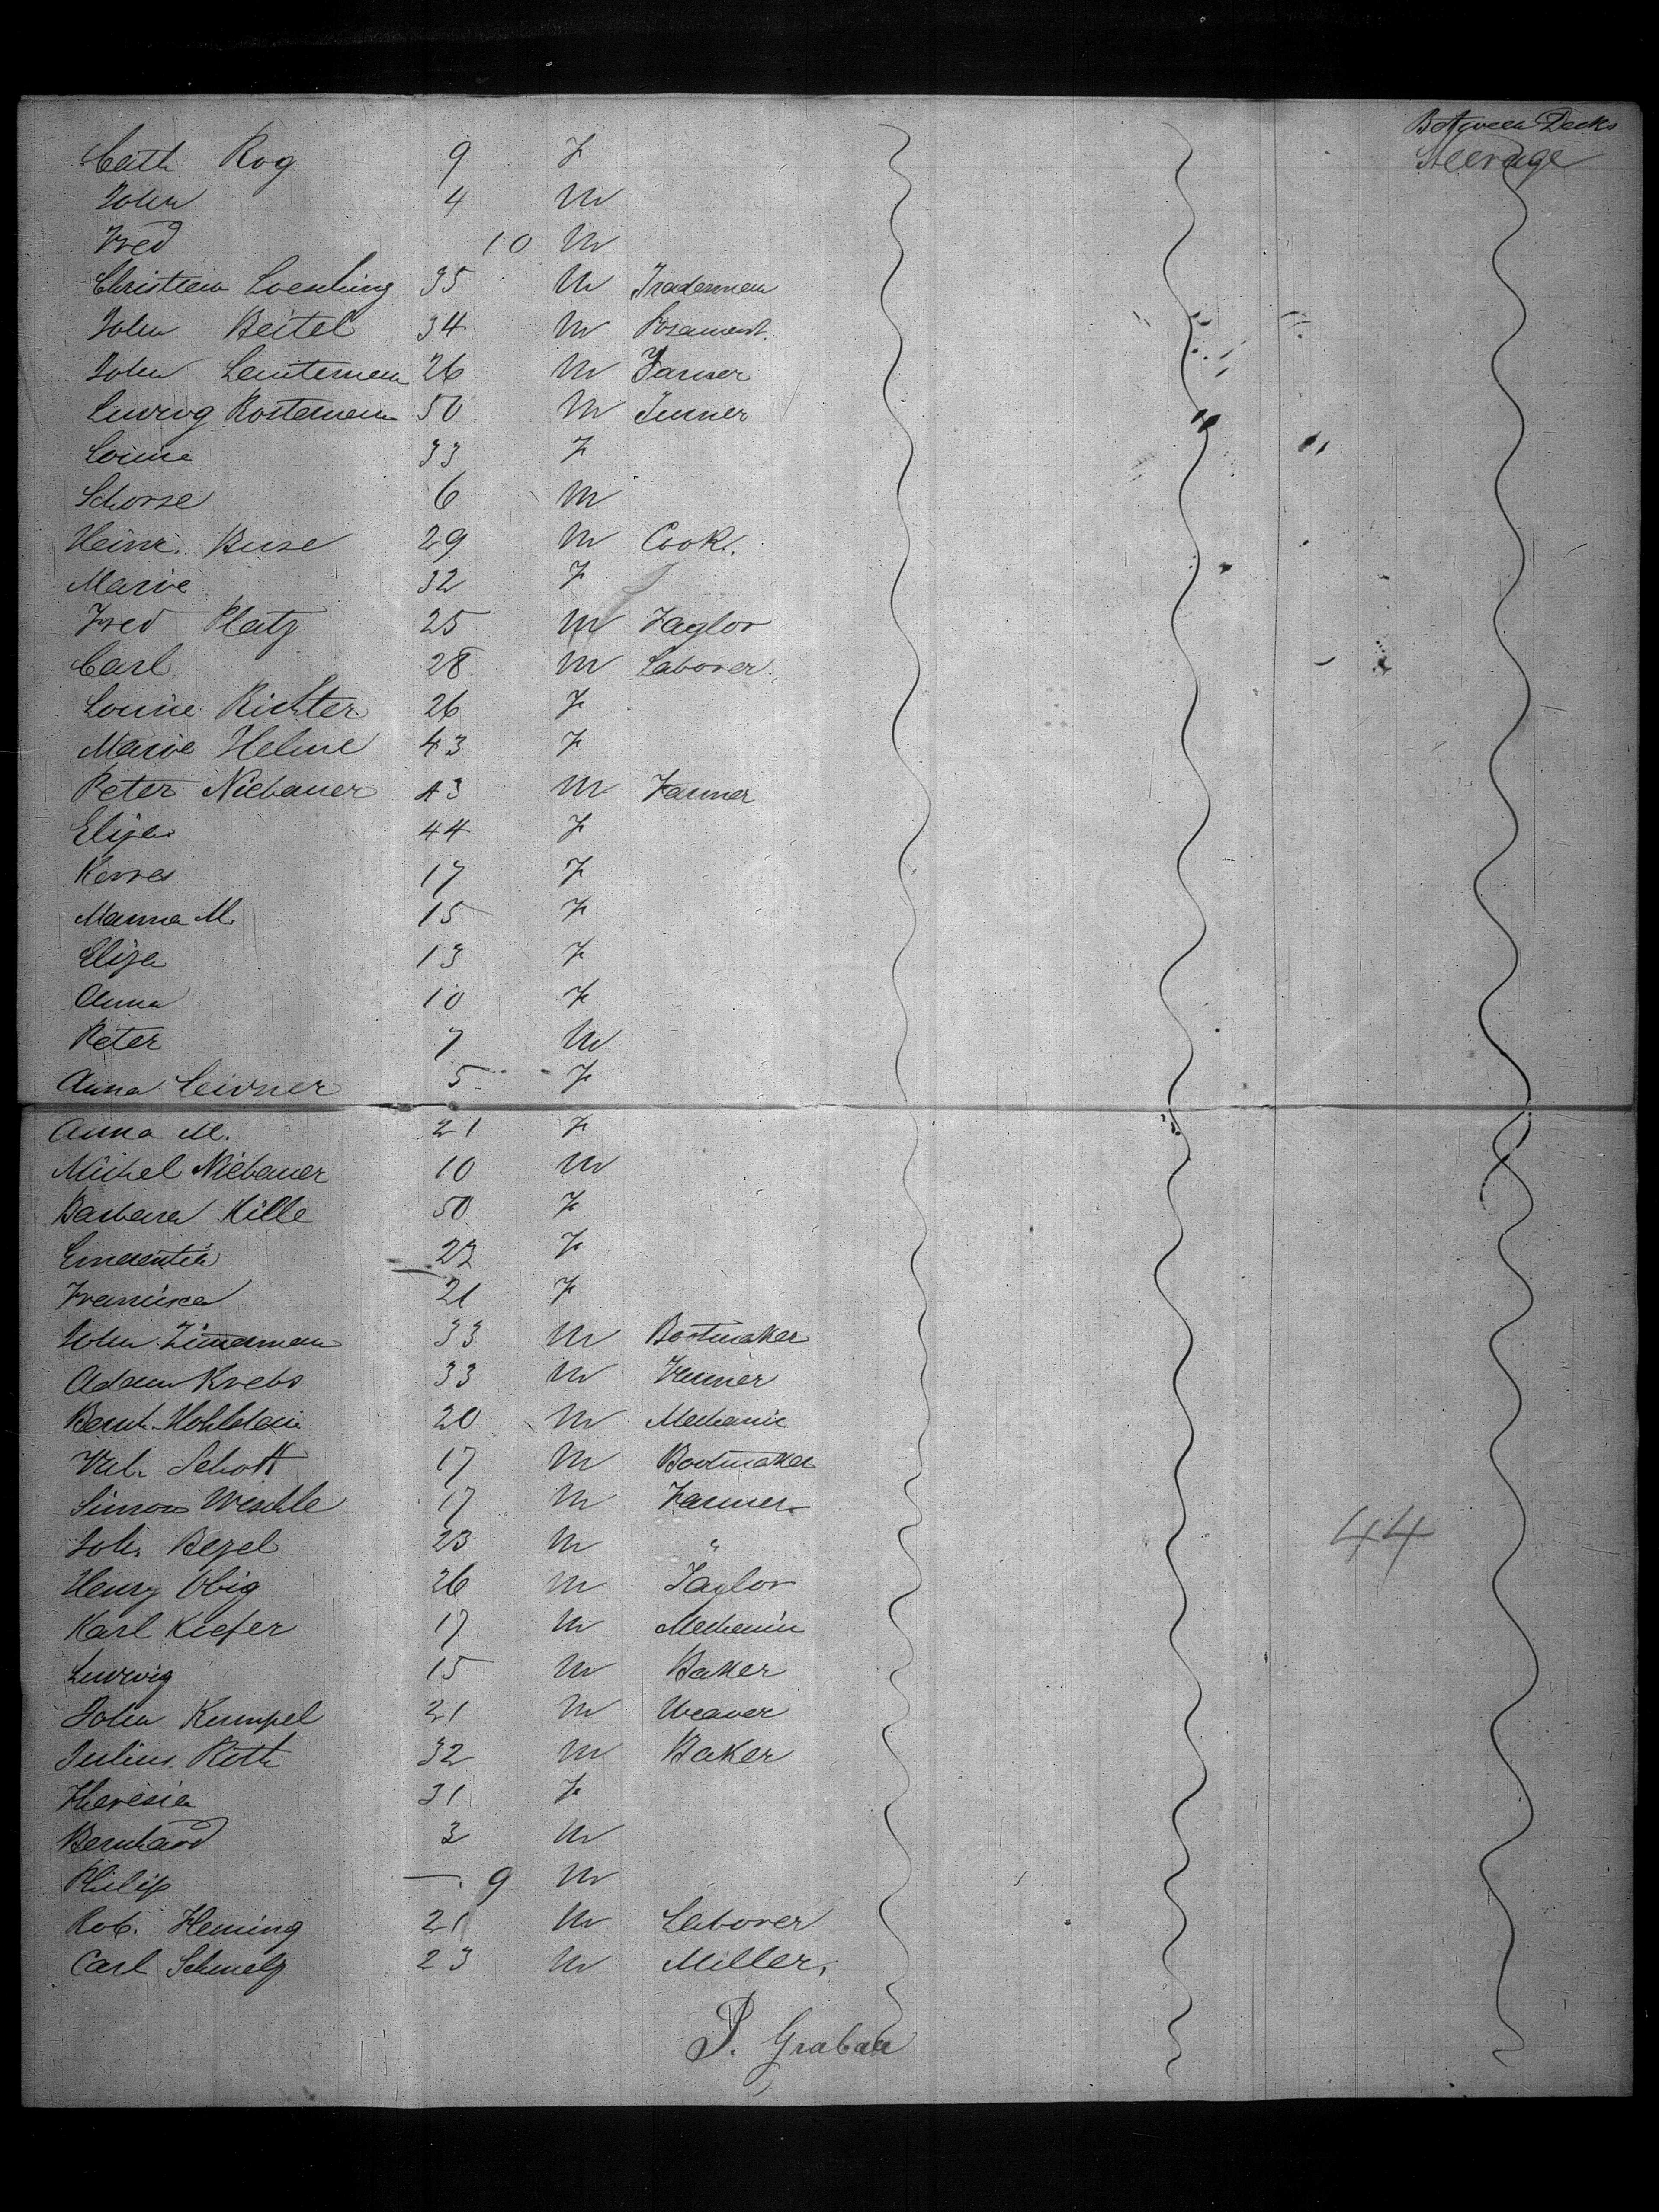 Between Decks
Steerage
Cath Rog 9 F
John 4 M
Fred 10 M
Christian Loesching 35 M Tradesman
John Beitel 34 M Posament.
John Lenteman 26 M Farmer
Ludwig Rosteman 50 M Turner
Louise 33 F
Schorse 6 M
Heinr. Buse 29 M Cook.
Marie 32 F
Fred Platz 25 M Taylor
Carl 28 M Laborer.
Louise Richter 26 F
Marie Helme 43 F
Peter Niebauer 43 M Farmer
Eliza 44 F
17 F
M. 15 F
Eliza 13 F
Anna 10 F
Peter 7 M
Anna Leivner 5 F
Anna M. 21 F
Michel Niebauer 10 M
Barbara Hille 50 F
Emerentia 22 F
Francisca 21 F
John Zimerman 33 M Bootmaker
Adam Krebs 33 M
Bernh. Hohlstein 20 M Mechanic
Val. Schott 17 M Bootmaker
Simon Weschle 17 M Farmer
Joh. Bezel 23 M "
Henry Obig 26 M Taylor
Karl Kiefer 17 M Mechanic
Ludwig 15 M Baker
John Kumpel 21 M Weaver
Julius Roth 32 M Baker
Theresia 31 F
Bernhard 3 M
Philip — . 9 M
Rob. Heming 21 M Laborer
Carl Schmelz 23 M Miller.
44
P. Grabau